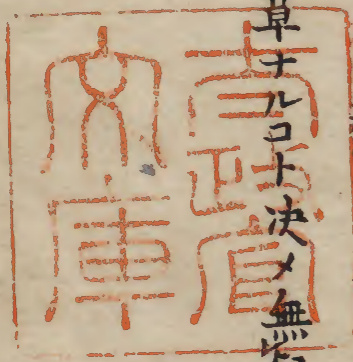 草ナルコト決メ無
太政官
文庫